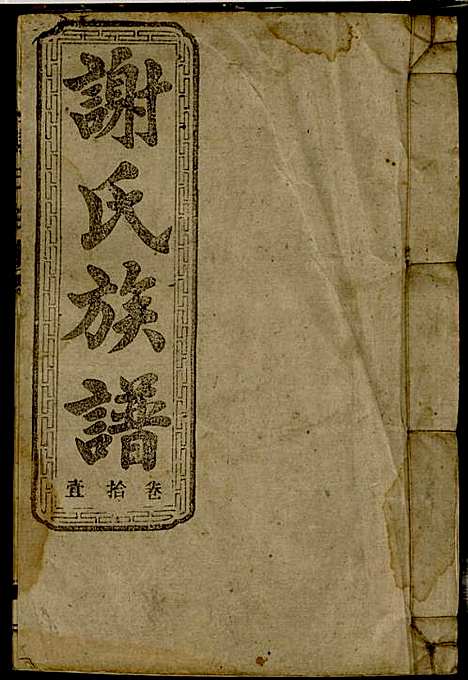 謝氏族譜
卷拾壹